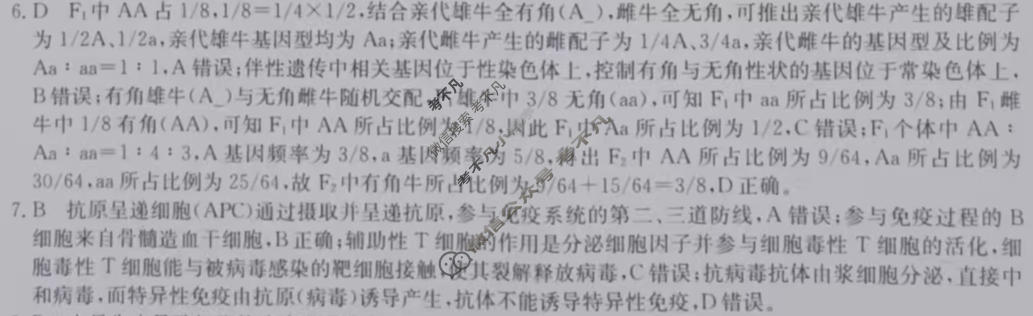 6.D F₁中 AA 占 1/8,1/8=1/4×1/2,结合亲代雄牛全有角(A_),雌牛全无角,可推出亲代雄牛产生的雄配子
为 1/2A、1/2a,亲代雄牛基因型均为 Aa;亲代雌牛产生的雌配子为 1/4A、3/4a,亲代雌牛的基因型及比例为
Aa∶aa=1∶1,A 错误;伴性遗传中相关基因位于性染色体上,控制有角与无角性状的基因位于常染色体上,
B错误;有角雄牛(A_)与无角雌牛随机交配 雄 中 3/8 无角(aa),可知 F₁中 aa 所占比例为 3/8;由 F₁雌
牛中 1/8 有角(AA),可知 F₁中 AA 所占比例为 1/8,因此 F₁中 Aa 所占比例为 1/2,C 错误;F₁个体中 AA∶
Aa∶aa=1∶4∶3,A 基因频率为 3/8,a 基因频率为 5/8, 出 F₂中 AA 所占比例为 9/64,Aa 所占比例为
30/64,aa 所占比例为 25/64,故 F₂中有角牛所占比例为 9/64+15/64=3/8,D 正确。
7.B 抗原呈递细胞(APC)通过摄取并呈递抗原,参与免疫系统的第二、三道防线,A 错误;参与免疫过程的 B
细胞来自骨髓造血干细胞,B 正确;辅助性 T 细胞的作用是分泌细胞因子并参与细胞毒性 T 细胞的活化,细
胞毒性 T 细胞能与被病毒感染的靶细胞接触 使其裂解释放病毒,C 错误;抗病毒抗体由浆细胞分泌,直接中
和病毒,而特异性免疫由抗原(病毒)诱导产生,抗体不能诱导特异性免疫,D 错误。
考不凡
微信搜索考不凡
考不凡
微信公众号